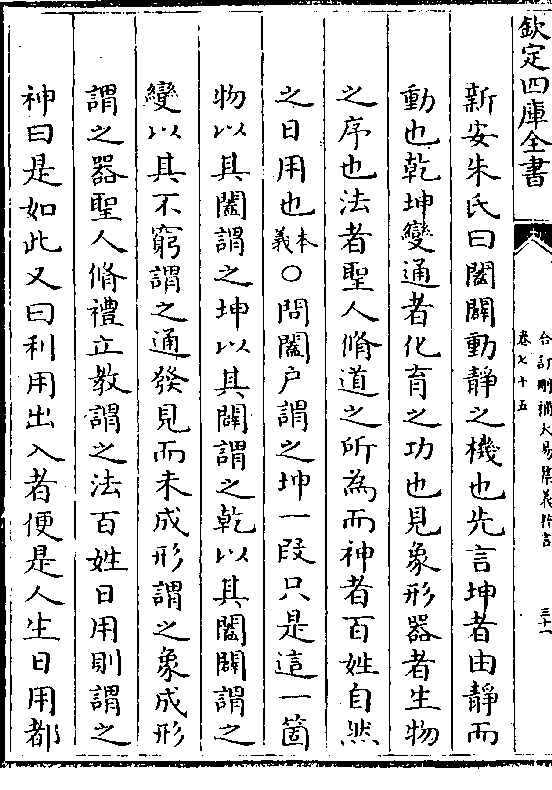 欽定四庫全書
合訂刪補大易集義粹言
卷七十五
三十一
新安朱氏曰闔闢動静之機也先言坤者由静而
動也乾坤變通者化育之功也見象形器者生物
之序也法者聖人脩道之所為而神者百姓自然
之日用也本義○問闔户謂之坤一段只是這一箇
物以其闔謂之坤以其闢謂之乾以其闔闢謂之
變以其不窮謂之通發見而未成形謂之象成形
謂之器聖人脩禮立教謂之法百姓日用則謂之
神曰是如此又曰利用出入者便是人生日用都